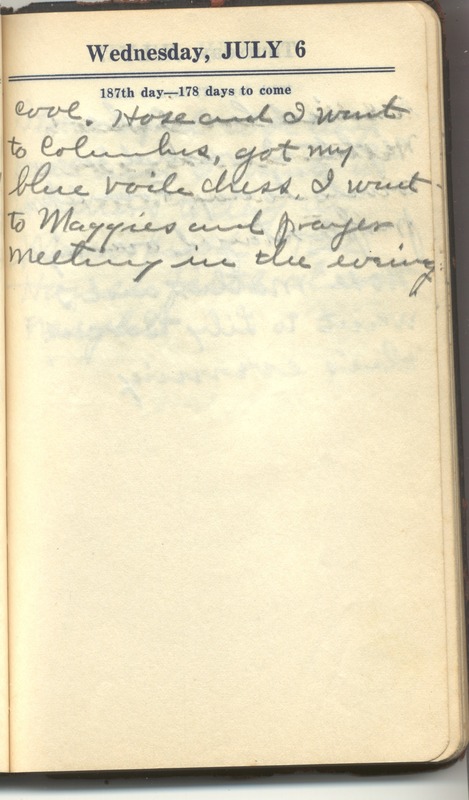 Wednesday, JULY 6
187th day—178 days to come
cool. Hose and I went
to Columbus, got my
blue voile dress. I went
to Maggies and prayer
meeting in the evening